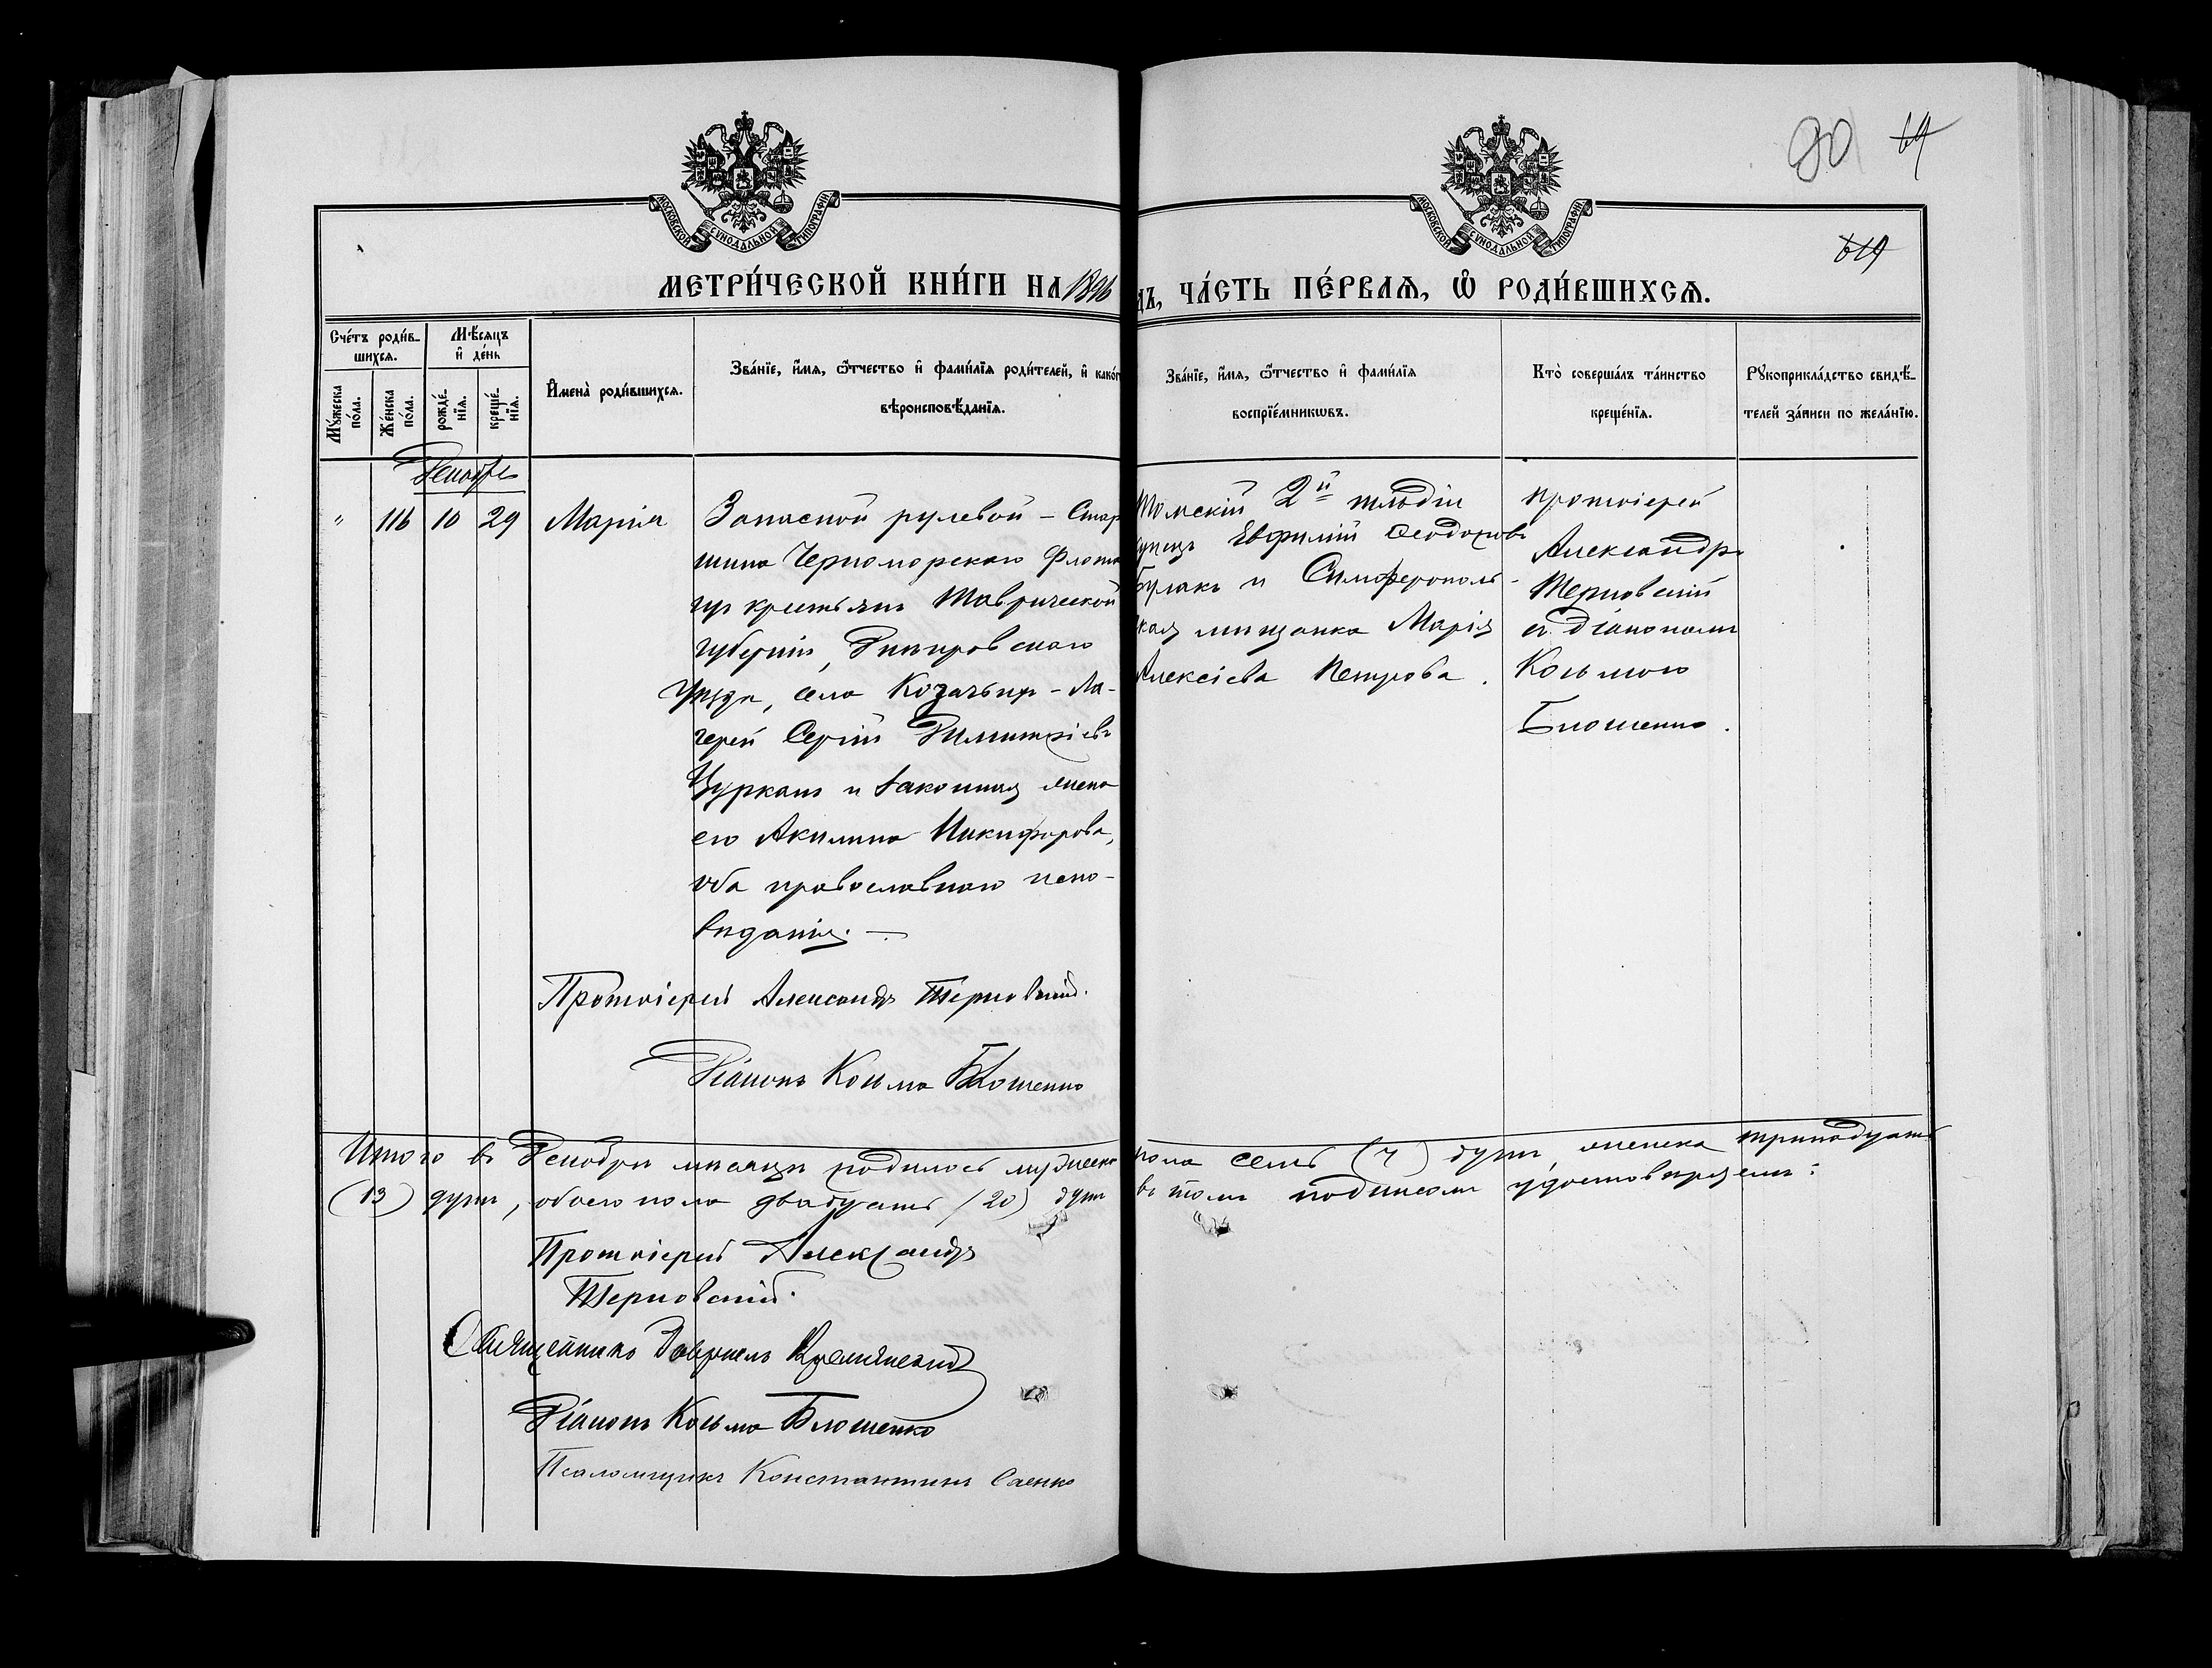 90 69
МОСКОВСКОЙ СѴНОДАЛЬНОЙ ТИПОГРАФІИ
МОСКОВСКОЙ СѴНОДАЛЬНОЙ ТИПОГРАФІИ
619
МЕТРИ́ЧЕСКОЙ КНИ́ГИ НА 1896
ДЪ, ЧА́СТЬ ПЕ́РВАѦ, Ѡ҆ РОДИ́ВШИХСѦ.
Сче́тъ роди́в-
шихсѧ.
Мꙋ́жеска по́ла.
Же́нска по́ла.
Мѣ́сѧцъ
и҆ де́нь
рожде́-
нїѧ.
креще́-
нїѧ.
И҆мена̀ роди́вшихсѧ.
Зва́нїе, и҆́мѧ, ѻ҆́тчество и҆ фами́лїѧ роди́телей, и҆ како́г
вѣроисповѣ́данїѧ.
Зва́нїе, и҆́мѧ, ѻ҆́тчество и҆ фами́лїѧ
воспрїе́мникѡвъ.
Кто̀ соверша́лъ та́инство
креще́нїѧ.
Рꙋкоприкла́дство свидѣ́-
телей за́писи по жела́нїю.
Декабрь
" 116 10 29 Марія
Запасной рулевой - Стар
шина Черноморскаго Флота
изъ крестьянъ Таврической
губерніи, Днѣпровскаго
Уѣзда, села Козачьихъ-Ла-
герей Сергій Димитріевъ
Цурканъ и законная жена
его Акилина Никифорова,
оба православнаго испо-
вѣданія. —
Томскій 2й гильдіи
купецъ Евфимій Ѳеодоровъ
Булакъ и Симферополь-
кая мѣщанка Марія
Алексіева Петрова.
Протоіерей
Александръ
Терновскій
съ діакономъ
Козьмою
Блошенко.
Протоіерей Александръ Терновскій.
Діаконъ Козьма Блошенко
Итого въ Декабрѣ мѣсяцѣ родилось мужеска
пола семь (7) душъ, женска тринадцать
(13) душъ, обоего пола двадцать (20) душъ
въ томъ подписомъ удостовѣряемъ:
Протоіерей Александръ
Терновскій.
Священникъ Гавріилъ
Діаконъ Козьма Блошенко
Псаломщикъ Константинъ Саенко